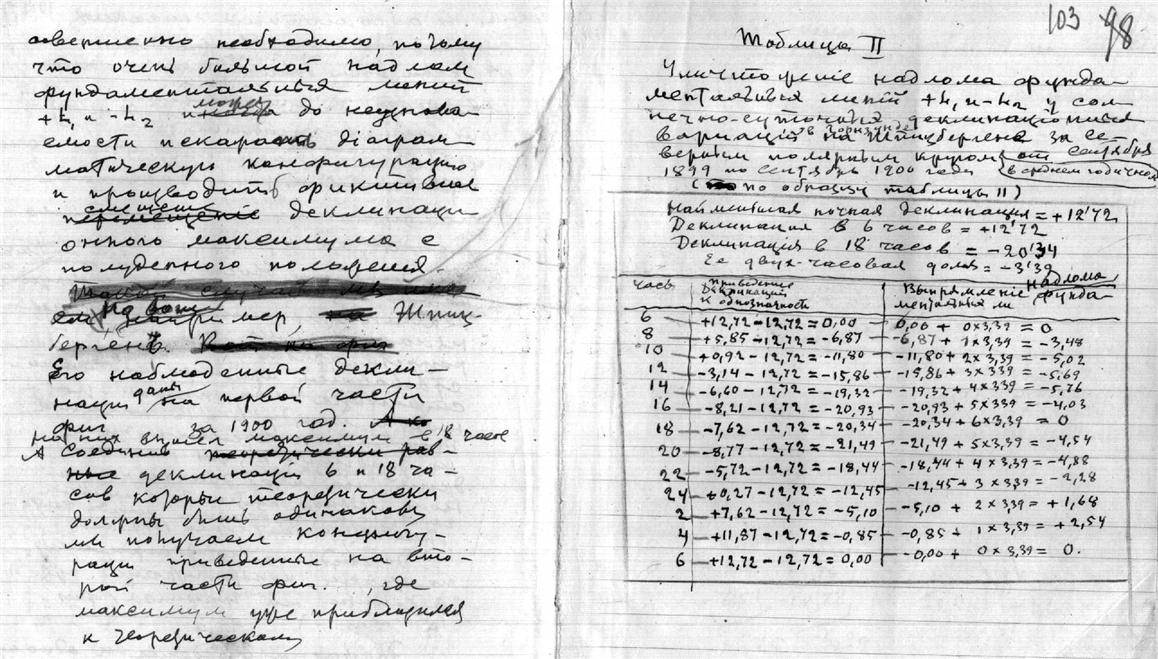 совершенно необходимо, потому
что очень большой надлом
фундаментальных линий
+h, и -h2 может до неузнава
емости искаразить діаграм
матическую конфигурацію
и производить фиктивная
смещенія деклинаци
оннаго максимума с
полуденного положения.
На Шпиц-
бергенѣ.
Его наблюденные декли-
націи даны на первой части
фиг за 1900 год.
На них вышел максимум в 18 часов
А соединив
деклинацій 6 и 18 ча-
сов которые теоретически
должны быть одинаковы
мы получаем конфигу-
рацію приведенные на вто-
рой части фиг. , где
максимум уже приблизился
к теоретическому
103 98
Таблица II
Уничтоженіе надлома фунда-
ментальных линій +h, и -h2 у сол
нечно-суточных деклинаціонных
варіацій на Шпицбергене за се-
верным полярным кругом от сентября
1899 по сентябрь 1900 года в среднем годичном
(по образцу таблицы II)
Найменьшая ночная деклинация = +12'72
Деклинация в 6 часов = +12'72
Деклинація в 18 часов = -20'34
Ее двух-часовая доля = -3'39
Часы Приведение деклинаций к однозначности Выпрямленіе надлома фунда-ментальных ли
6 +12,72-12,72=0,00 0,00 + 0×3,39 = 0
8 +5,85-12,72=-6,87 -6,87 + 1×3,39 = -3,48
10 +0,92-12,72=-11,80 -11,80+2×3,39 = -5,02
12 -3,14-12,72=-15,86 -15,86+3×339 = -5,69
14 -6,60-12,72=-19,32 -19,32+4×339 = -5,76
16 -8,21-12,72=-20,93 -20,93 + 5×339 = -4,03
18 -7,62-12,72=-20,34 -20,34 + 6×3,39 = 0
20 -8,77-12,72=-21,49 -21,49 + 5×3,39 = -4,54
22 -5,72-12,72=-18,44 -18,44 + 4×3,39 = -4,88
24 +0,27-12,72=-12,45 -12,45 + 3×339 = -2,28
2 +7,62-12,72=-5,10 -5,10 + 2×339 = +1,68
4 +11,87-12,72=-0,85 -0,85 + 1×3,39 = +2,54
6 +12,72-12,72=0,00 -0,00 + 0×3,39 = 0.